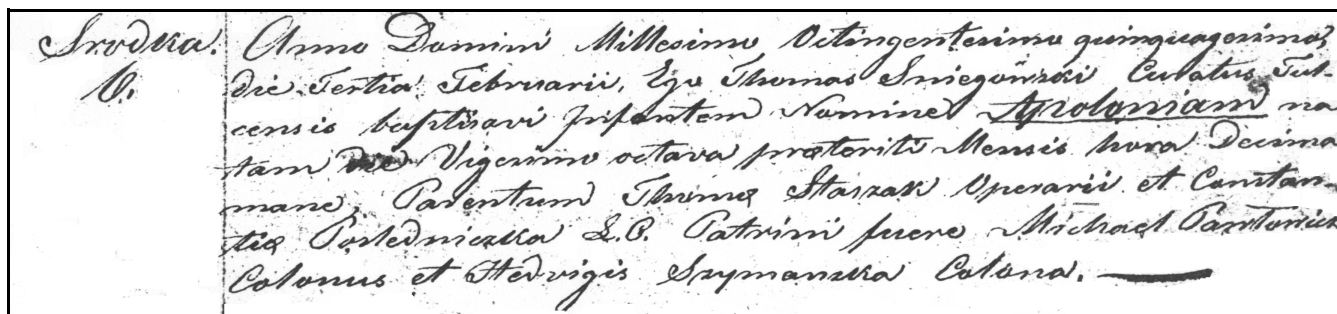 Srodka.
6.
Anno Domini Millesimo Octingentesimo quinquagesimo,
die Tertia Februarii, Ego Thomas Sniegoński Curatus Tul-
censis baptisavi Infantem Nomine Apoloniam na
tam die Vigesimo octava praeteriti Mensis hora Decima
mane, Parentum Thomæ Staszak Operarii et Constan-
tiæ Posledniczka L.C. Patrini fuere Michael Pantonicz
Colonus et Hedvigis Szymanzka Colona.